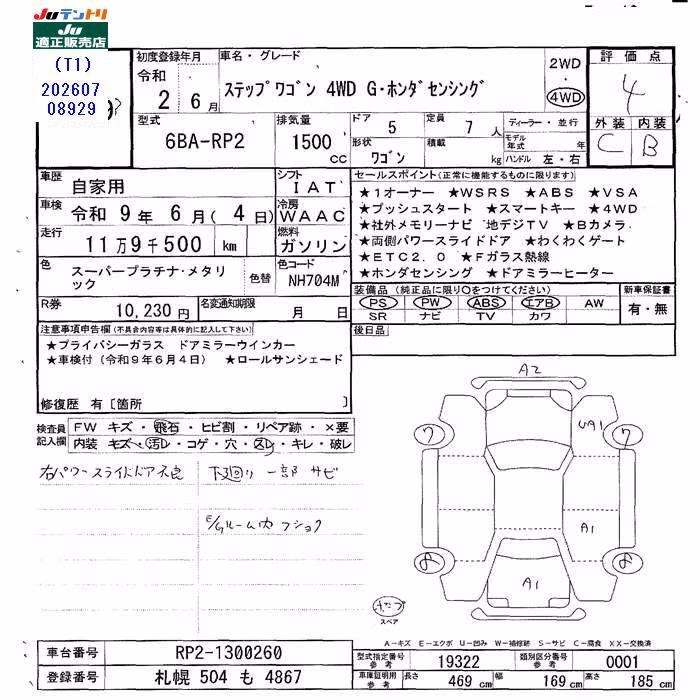 Juテントリ
Ju
適正販売店
(T1)
202607
08929
初度登録年月
令和
2 6 月
車名・グレード
ステップワゴン 4WD G・ホンダセンシング
2WD
・
4WD
評価点
4
外装 内装
C B
型式
6BA-RP2
排気量
1500
cc
ドア 5
定員 7 人
形状 ワゴン
積載 kg
ディーラー・並行
モデル年式 年
ハンドル 左・右
車歴 自家用
シフト IAT
車検 令和 9 年 6 月 ( 4 日)
冷房 WAAC
走行 11 万 9 千 500 km
燃料 ガソリン
色 スーパープラチナ・メタリック
色替
色コード NH704M
R券 10,230 円
名変通知期限 月 日
セールスポイント(正常に機能するものに限ります)
★1オーナー ★WSRS ★ABS ★VSA
★プッシュスタート ★スマートキー ★4WD
★社外メモリーナビ 地デジTV ★Bカメラ
★両側パワースライドドア ★わくわくゲート
★ETC2.0 ★Fガラス熱線
★ホンダセンシング ★ドアミラーヒーター
装備品 (純正品に限り○をつけてください)
新車保証書
PS PW ABS エアB AW
SR ナビ TV カワ
有・無
後日品
注意事項申告欄(不具合内容等は具体的に記入して下さい)
★プライバシーガラス ドアミラーウインカー
★車検付 (令和9年6月4日) ★ロールサンシェード
修復歴 有 [箇所 ]
検査員記入欄
FW キズ・飛石・ヒビ割・リペア跡・×要
内装 キズ・汚レ・コゲ・穴・スレ・キレ・破レ
右パワースライドドア不良
下廻り 一部 サビ
E/gルーム内 フショク
A2
UA1
ワ ワ
A1
A1
スペア
A-キズ E-エクボ U-凹み W-補修跡 S-サビ C-腐食 XX-交換済
車台番号 RP2-1300260
登録番号 札幌 504 も 4867
型式指定番号 参考 19322
類別区分番号 参考 0001
車庫証明用 参考 長さ 469 cm 幅 169 cm 高さ 185 cm